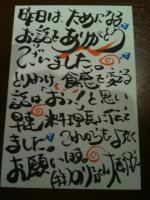 昨日は、ためになる
お話をありがとう
ございました。
とりわけ、食感を変る
話は「お!」と思い
早速料理長に伝え
ました。これからもよろしく
お願いします。